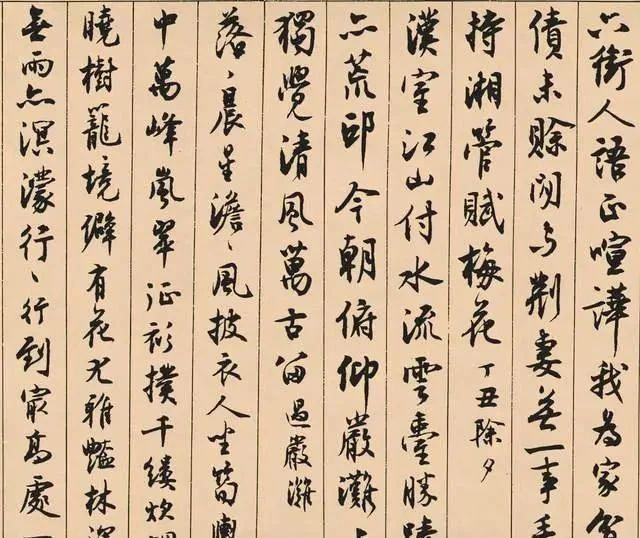 六街人語正喧譁我為家貧
債未賒閒與荊妻無一事手
持湘管賦梅花 丁丑除夕
漢室江山付水流雲臺勝蹟
亦荒邱今朝俯仰嚴灘上
獨覺清風萬古留 過嚴灘
落落晨星澹澹風披衣人坐筍輿
中萬峰嵐翠征衫撲千縷炊煙
曉樹籠境僻有花尤雅豔林深
無雨亦溟濛行行行到最高處